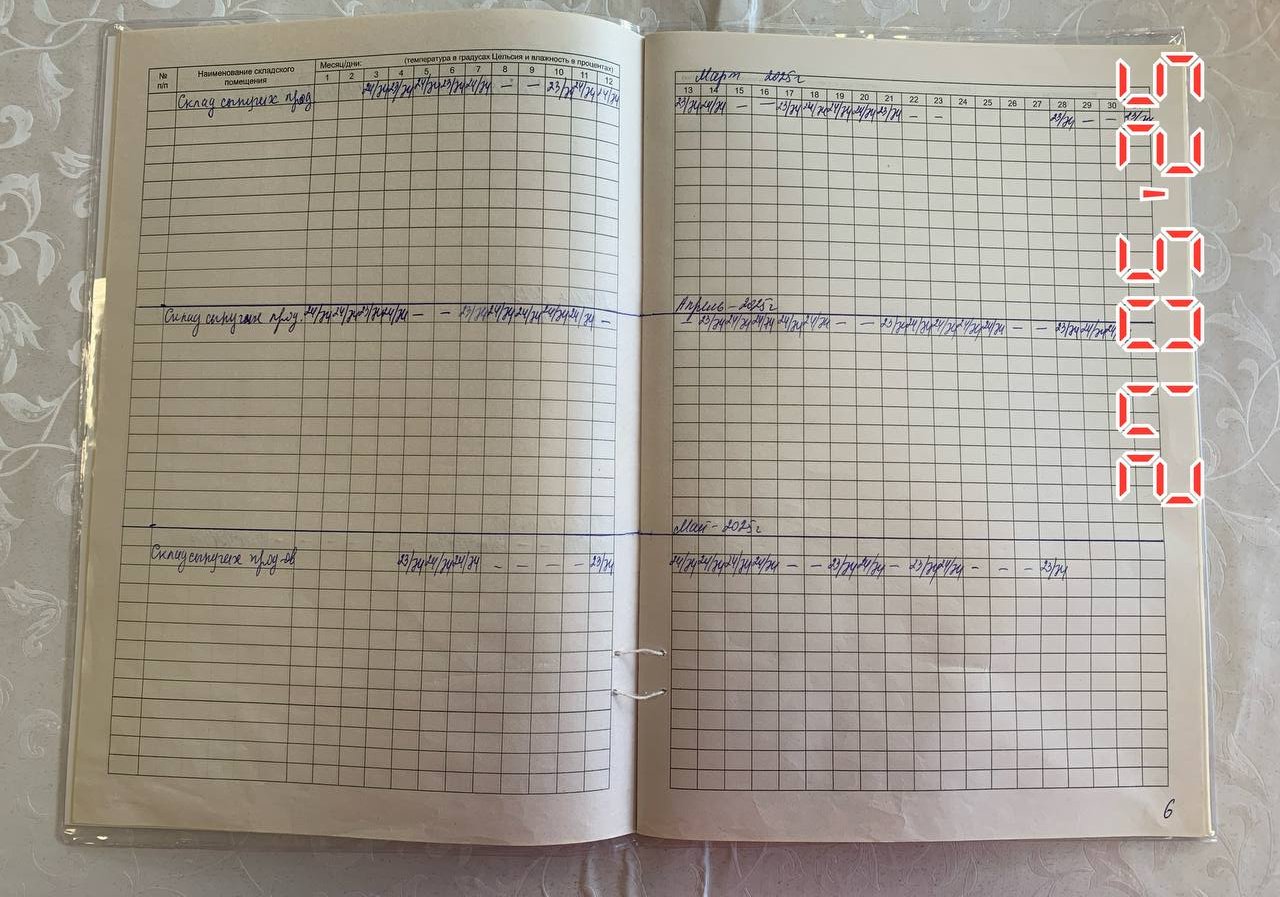 № п/п
Наименование складского помещения
Месяц/дни: (температура в градусах Цельсия и влажность в процентах)
1 2 3 4 5 6 7 8 9 10 11 12
Склад сыпучих прод. 24/74 23/74 24/74 23/74 24/74 — — 23/74 24/74 24/74
Март 2025г
13 14 15 16 17 18 19 20 21 22 23 24 25 28 29 30
23/74 24/74 — — 23/74 24/74 24/74 24/74 23/74 — — 23/74 — — 23/74
Склад сыпучих прод. 24/74 24/74 23/74 24/74 — — 23/74 24/74 24/74 24/74 24/74 —
Апрель - 2025г
23/74 24/74 24/74 24/74 24/74 — — 23/74 24/74 24/74 24/74 24/74 — — 23/74 24/74
Май - 2025г
Склад сыпучих прод-ов 23/74 24/74 24/74 — — — — 23/74
24/74 24/74 24/74 24/74 — — 23/74 24/74 — 23/74 24/74 — — — 23/74
6